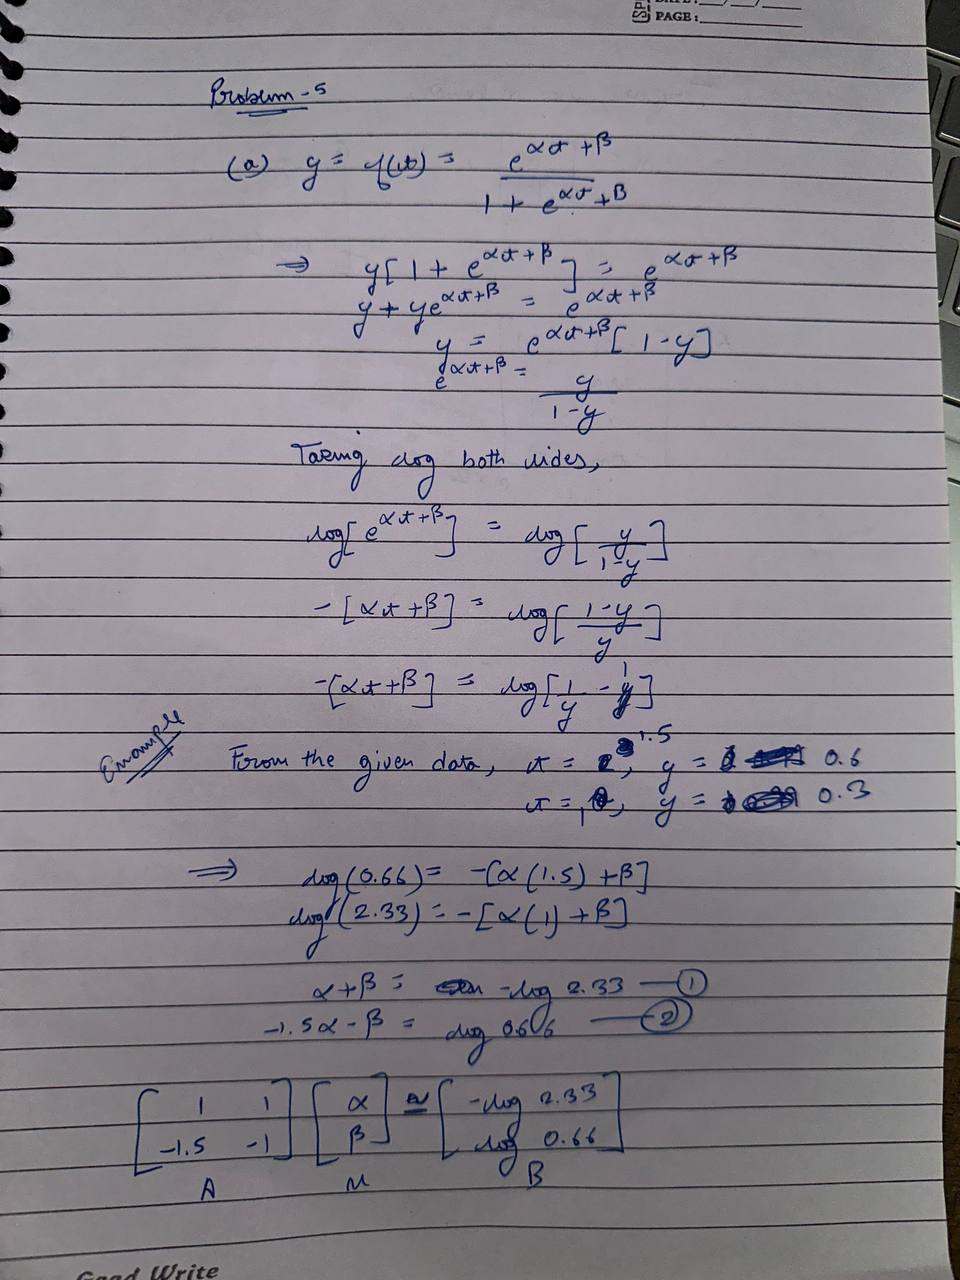 PAGE:
Problem-5
(a) y = f(t) = e^{αt+β} / 1 + e^{αt+β}
⇒ y[1 + e^{αt+β}] = e^{αt+β}
y + ye^{αt+β} = e^{αt+β}
y = e^{αt+β}[1-y]
e^{αt+β} = y / 1-y
Taking log both sides,
log[e^{αt+β}] = log[y / 1-y]
-[αt+β] = log[1-y / y]
-[αt+β] = log[1/y - 1]
Example
From the given data, t = 1.5, y = 0.6
t = 1, y = 0.3
⇒ log(0.66) = -[α(1.5)+β]
log(2.33) = -[α(1)+β]
α+β = -log 2.33 — ①
-1.5α-β = log 0.66 — ②
[1 1] [α] ≅ [-log 2.33]
[-1.5 -1] [β] [log 0.66]
A M B
Good Write